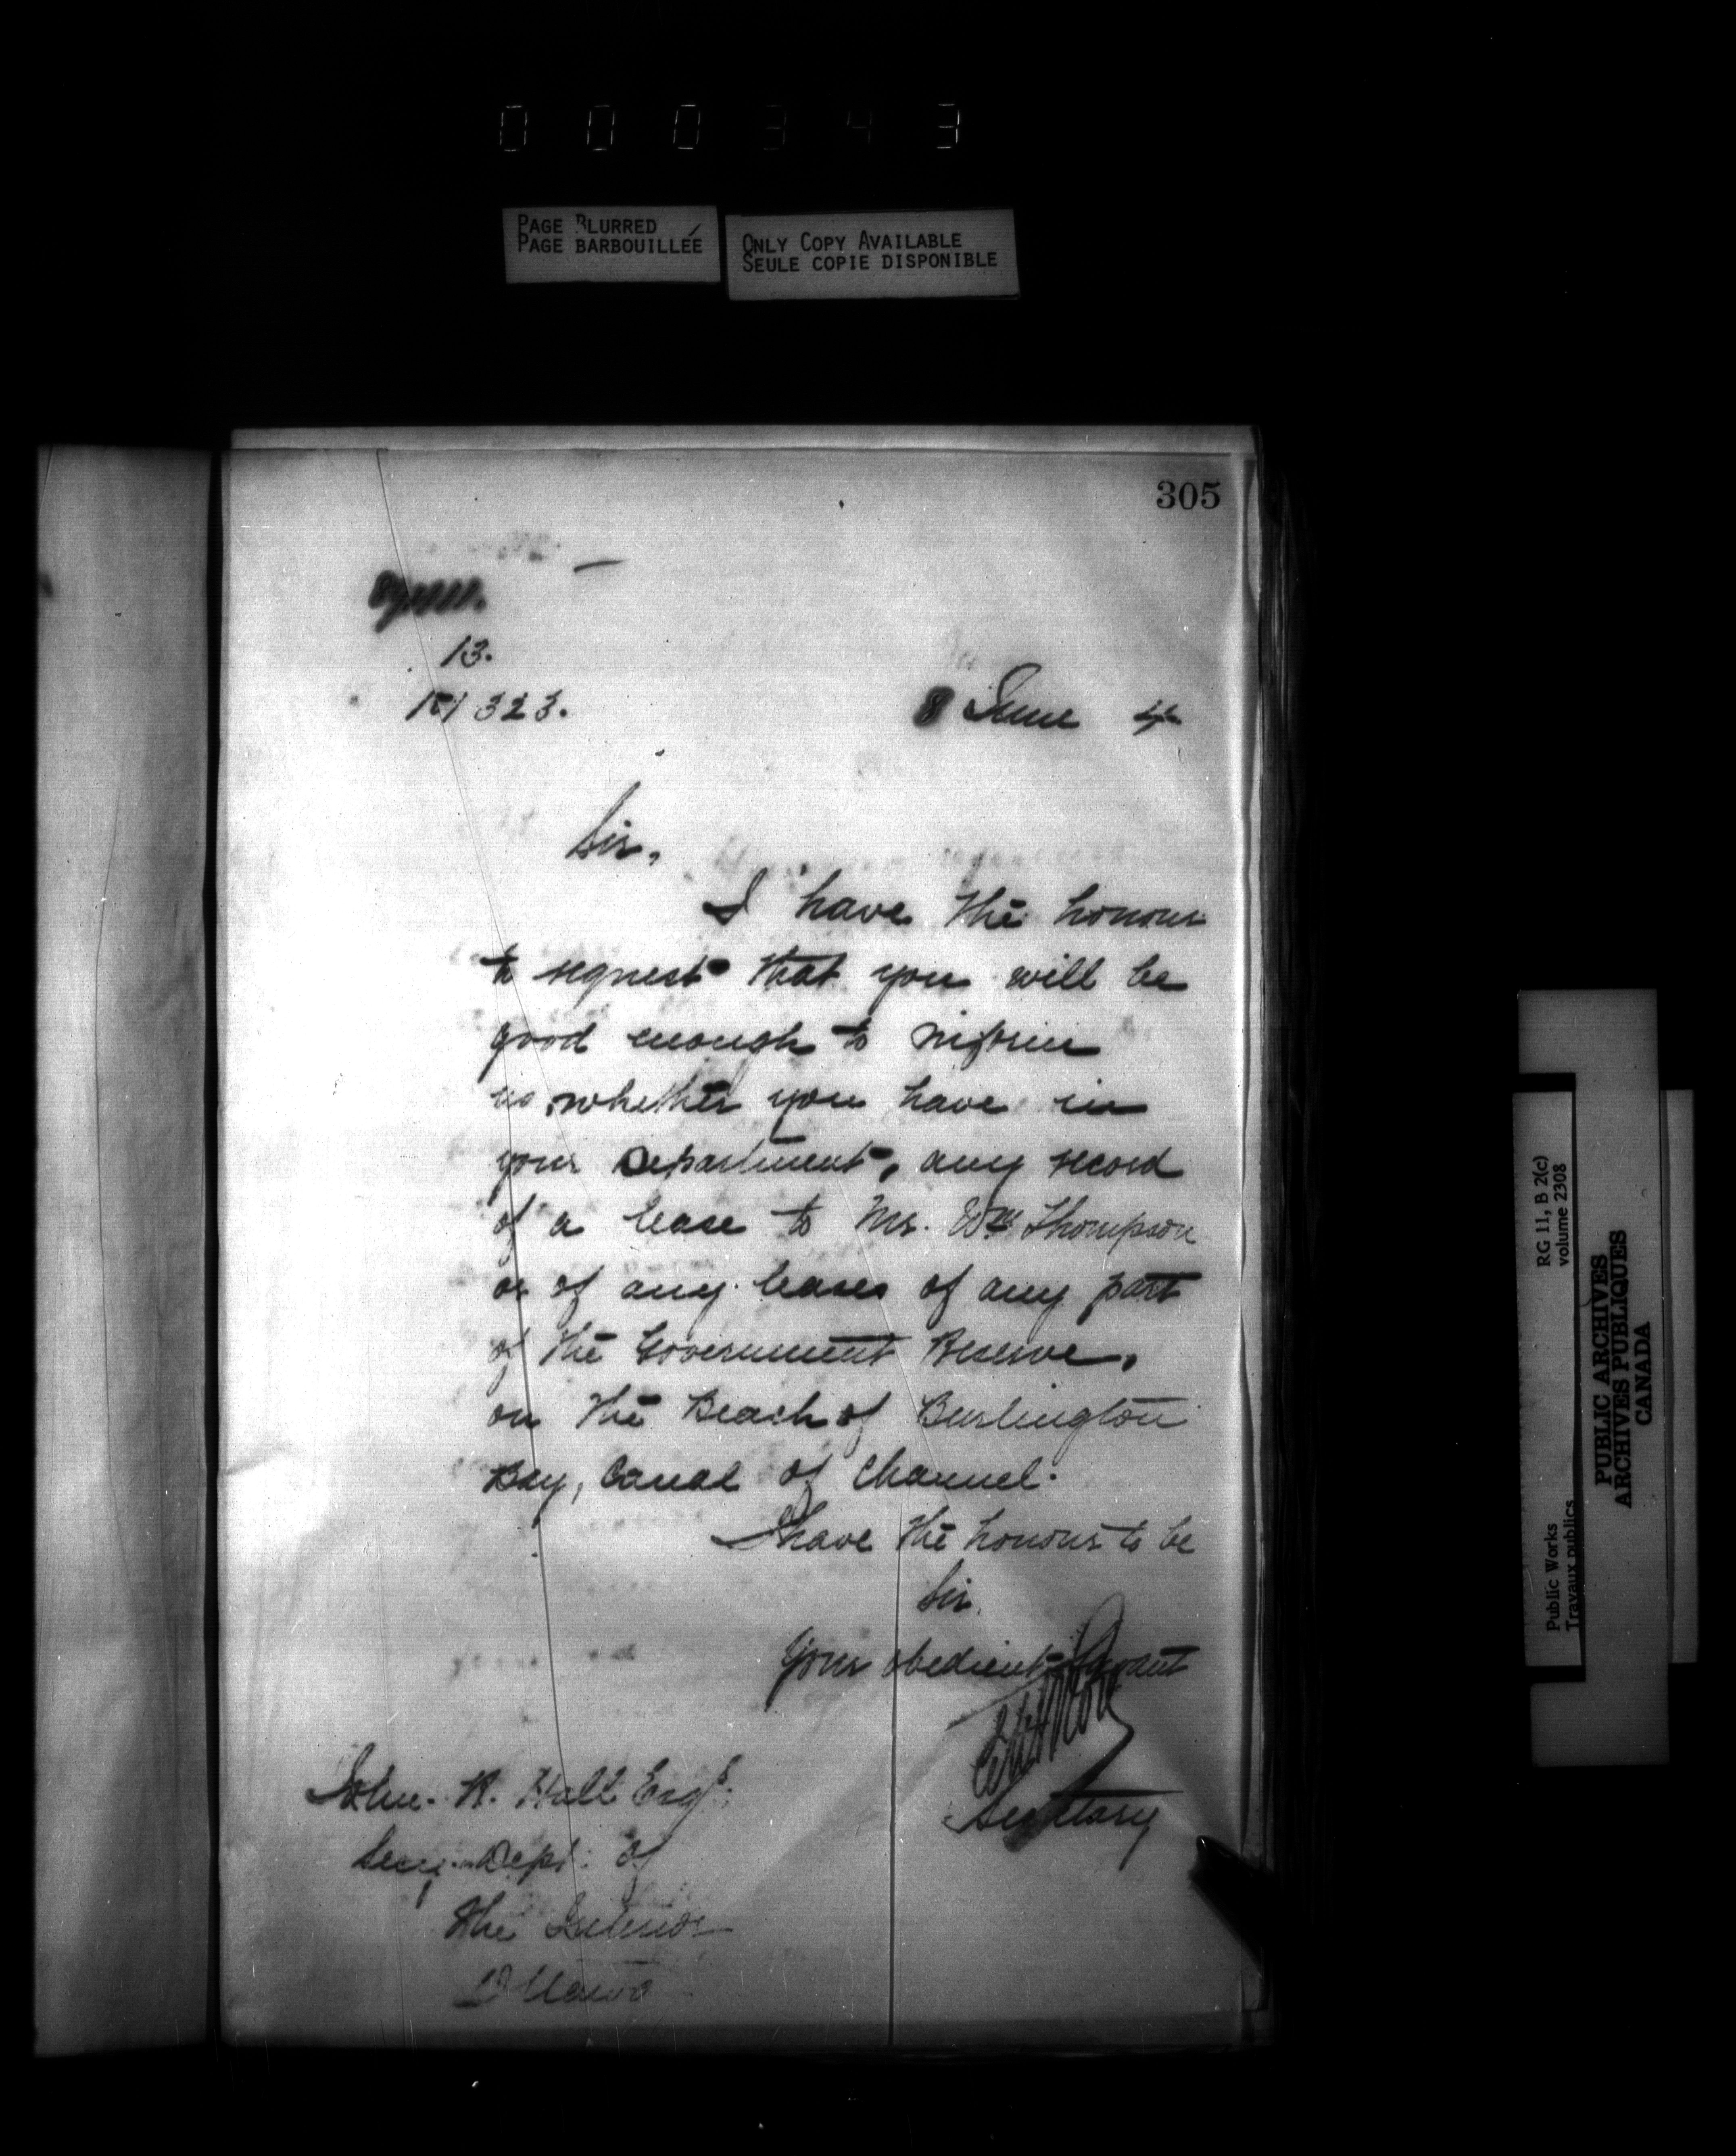 000343
PAGE BLURRED
PAGE BARBOUILLÉE
ONLY COPY AVAILABLE
SEULE COPIE DISPONIBLE
305
13.
151323.
8 June 4
Sir,
I have the honour
to request that you will be
good enough to inform
us, whether you have in
your Department, any record
of a lease to Mr. Wm Thompson
or of any leases of any part
of the Government Reserve,
on the Beach of Burlington
Bay, Canal of Channel.
I have the honour to be
Sir,
Your obedient Servant
Secretary
John. R. Hall Esqr.
Secy. Dept. of
the Interior
Ottawa
RG 11, B 2(c)
volume 2308
Public Works
Travaux publics
PUBLIC ARCHIVES
ARCHIVES PUBLIQUES
CANADA